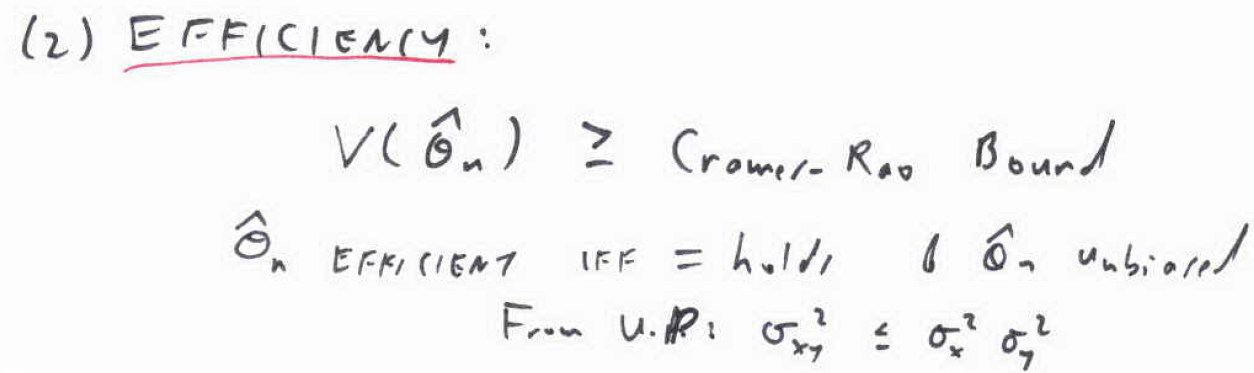 (2) EFFICIENCY:
V(θ̂ₙ) ≥ Cramer-Rao Bound
θ̂ₙ EFFICIENT IFF = holds & θ̂ₙ unbiased
From U.P: σ²ₓᵧ ≤ σₓ² σᵧ²